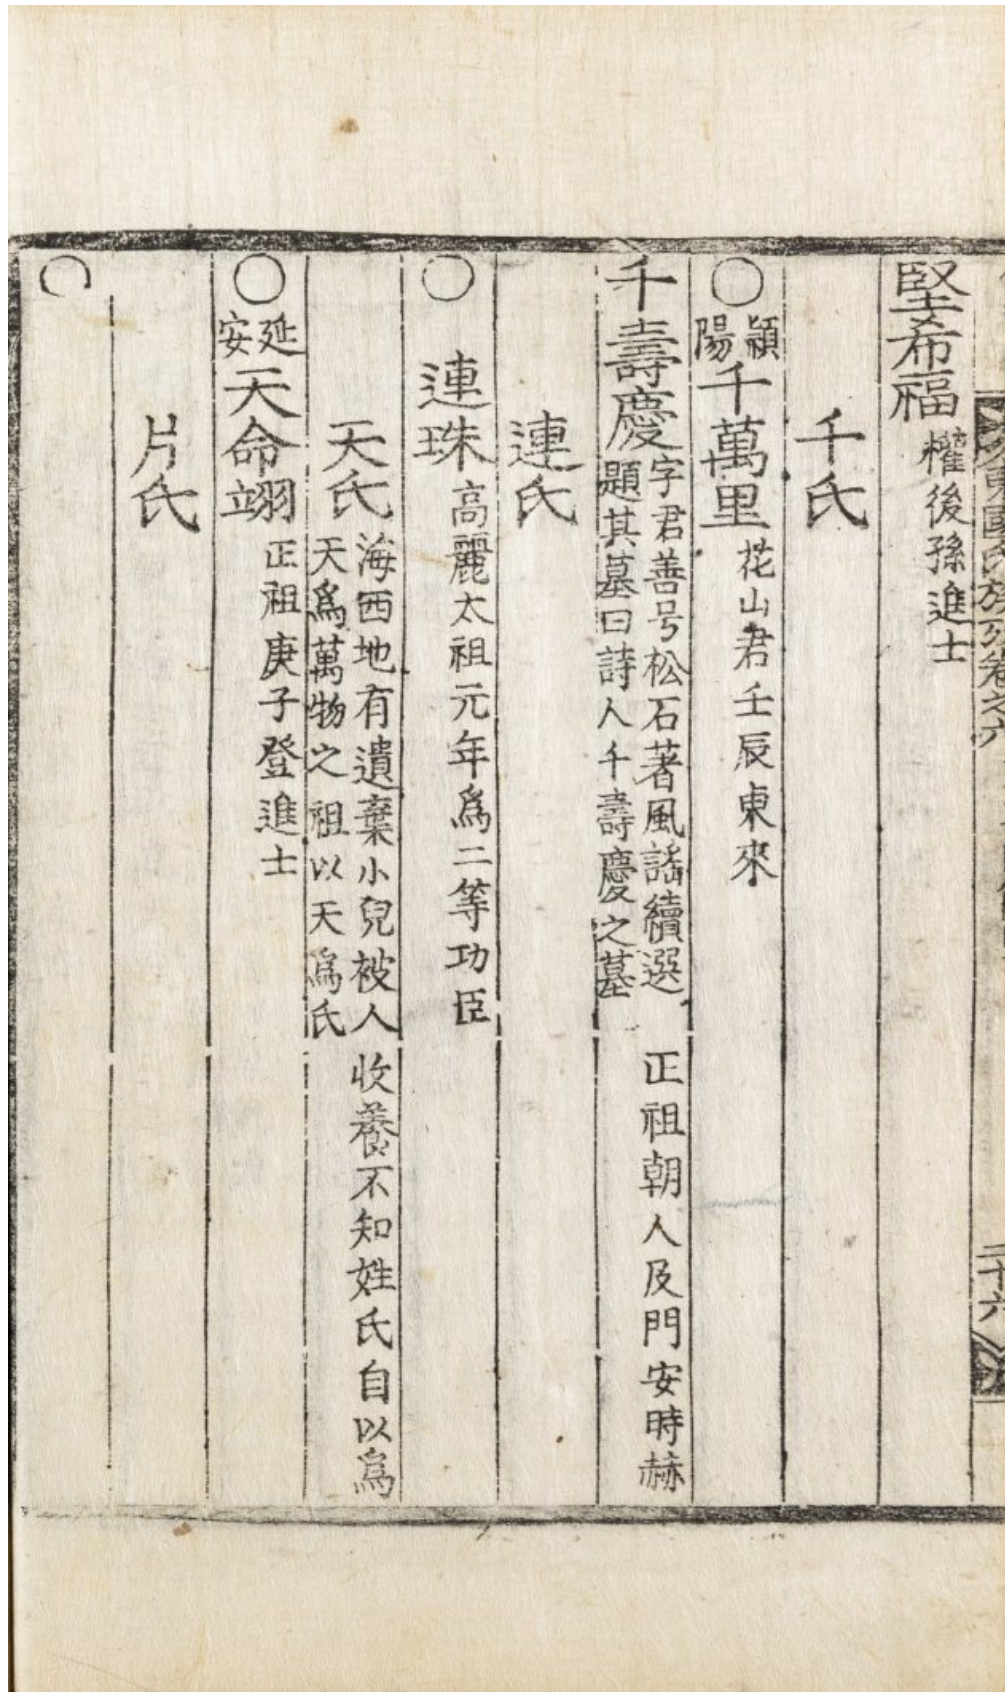 東國氏族攷卷之六
二十六
堅希福 權後孫進士
千氏
○潁陽 千萬里 花山君壬辰東來
千壽慶 字君善号松石著風謠續選 正祖朝人及門安時赫
題其墓曰詩人千壽慶之墓
連氏
○ 連珠 高麗太祖元年爲二等功臣
天氏 海西地有遺棄小兒被人收養不知姓氏自以爲
天爲萬物之祖以天爲氏
○延安 天命翊 正祖庚子登進士
片氏
○